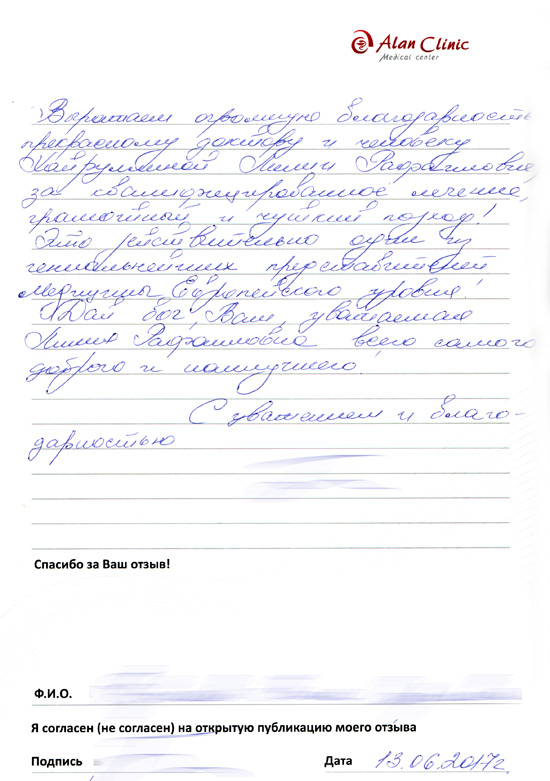 Alan Clinic
Medical center
Выражаем огромную благодарность
прекрасному доктору и человеку
Хайруллиной Лилии Рафаиловне
за квалифицированное лечение,
грамотный и чуткий подход!
Это действительно один из
гениальнейших представителей
медицины Европейского уровня!
Дай бог Вам, уважаемая
Лилия Рафаиловна всего самого
доброго и наилучшего!
С уважением и благо-
дарностью
Спасибо за Ваш отзыв!
Ф.И.О.
Я согласен (не согласен) на открытую публикацию моего отзыва
Подпись Дата 13.06.2017г.